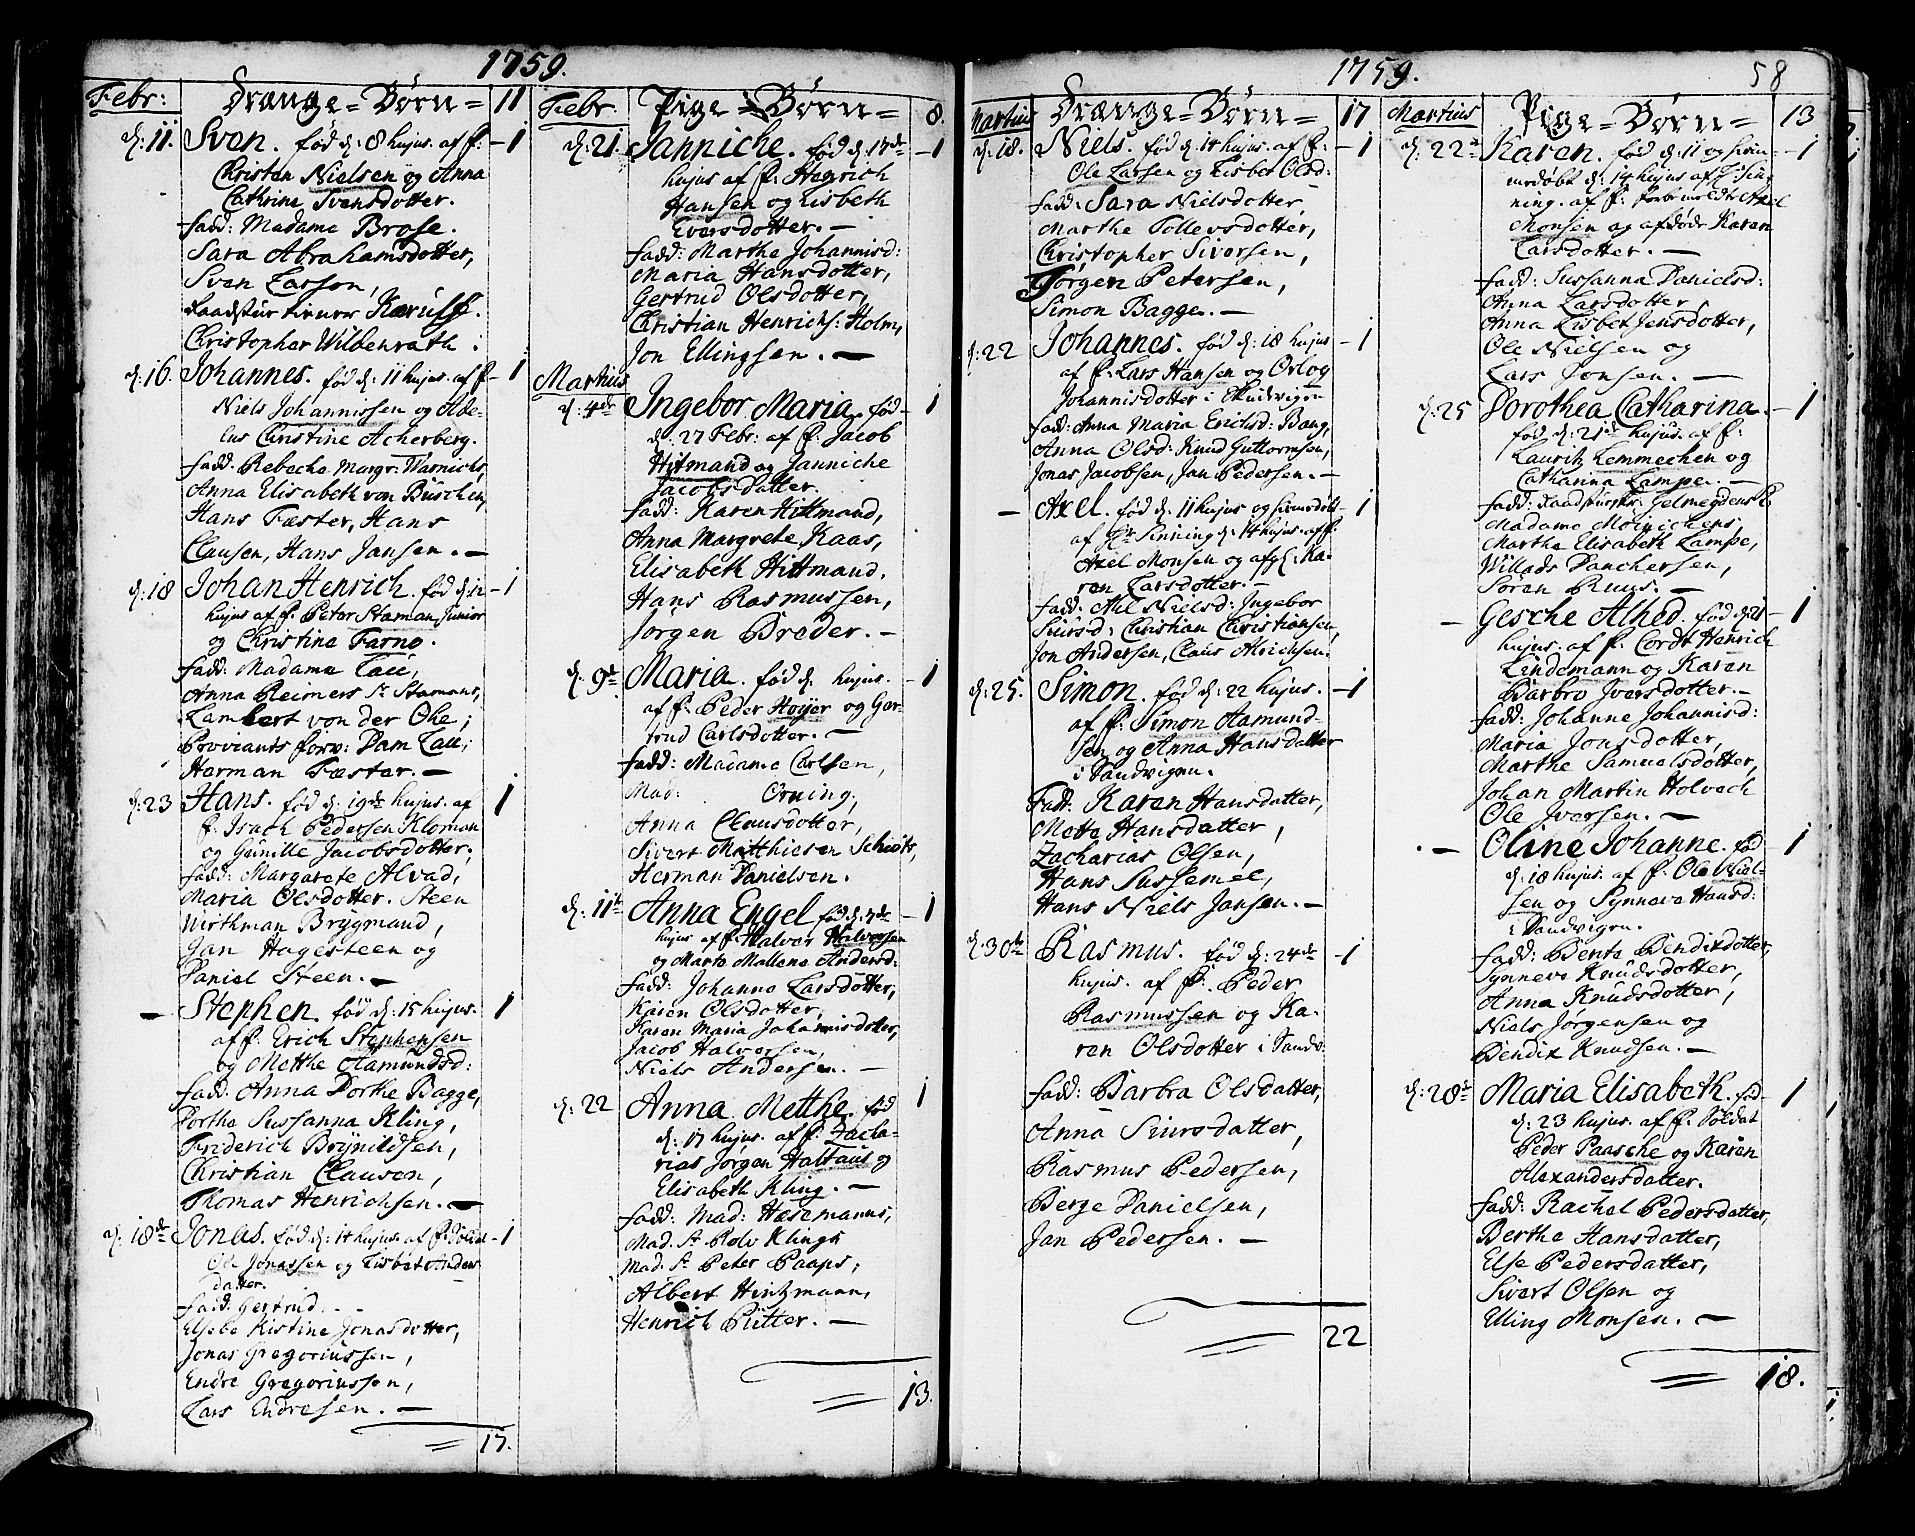 1759.
Febr: Drænge=Børn= 11
d: 11. Sven. fød d: 8 hujus. af f: -1
Christen Nielsen og Anna
Cathrine Svensdotter.
fadd: Madame Brose.
Sara Abrahamsdotter,
Sven Larson,
Raadstue tiener Karuss.
Christopher Wilbenrath.
d: 16. Johannes. fød d: 11 hujus. af f- 1
Niels Johannissen og Abe-
lus Christine Acherberg.
fadd. Rebecha Margr: Warnichs,
Anna Elisabeth von Büschen,
Hans Fæster, Hans
Clausen, Hans Jansen. -
d: 18 Johan Henrich. fød d: 12 -1
hujus af f. Peter Staman Junior
og Christine Farno.
fadd: Madame Lau,
Anna Reimers Sl Stamans,
Lambert von der Ohe,
Proviants forv: Dam Lau,
Harman Fæster. -
d: 23 Hans. fød d: 19de hujus. af 1
f. Isach Pedersen Kloman
og Gunille Jacobsdotter,
fadd: Margarete Alvad,
Maria Olsdotter. Steen
Wirthman Brygmand,
Jan Hagesteen og
Daniel Steen. -
- Stephen. fød d: 15 hujus. 1
af f. Erich Stephensen
og Metthe Aamundsd:
fadd: Anna Dorthe Bagge,
Dorthe Sussanna Kling,
Friderich Brynildsen,
Christian Clausen,
Thomas Henrichsen. -
d: 18de Jonas. fød d: 14 hujus. af f. Soldat -1
Ole Jonassen og Lisbet Anders
datter.
fadd: Gertrud. -
Elsebe Kistine Jonasdotter,
Jonas Gregoriussen,
Endre Gregoriussen,
Lars Endresen. -
17.
Febr. Pige=Børn= 8.
d: 21. Janniche. fød d. 17de -1
hujus af f. Henrich
Hansen og Lisbeth
Eversdotter. -
fadd: Marthe Johannisd:
Maria Hansdotter,
Gertrud Olsdotter,
Christian Henrichs: Holm,
Jon Ellingsen. -
Martius
d: 4de Ingebor Maria. fød- 1
d. 27 Febr: af f: Jacob
Hitmand og Janniche
Jacobsdatter.
fadd: Karen Hittmand,
Anna Margrete Kaas,
Elisabeth Hittmand.
Hans Rasmussen,
Jørgen Breder. -
d. 9de Maria. fød d. hujus. -1
af f. Peder Høyer og Ger-
trud Carlsdotter. -
fadd: Madame Carlsen,
Mad: Orning,
Anna Clausdotter,
Sivert Matthiesen Schiøts,
Herman Danielsen.
d. 11te Anna Engel fød d. 7de -1
hujus af f. Halvor Halversen
og Marte Mallene Andersd:
fadd: Johanne Larsdotter,
Karen Olsdotter,
Karen Maria Johannisdotter,
Jacob Halversen,
Niels Andersen. -
d: 22 Anna Metthe. fød 1
d: 17 hujus. af f. Zacha-
rias Jørgen Haltaus og
Elisabeth Kling. -
fadd: Mad: Hasemanns,
Mad. Sl Rolv Klingk
Mad. Sl Peter Paaps,
Albert Hintzmann,
Henrich Pütter. -
13.
1759. 58
Martius Drænge=Børn= 17
d: 18. Niels. fød d. 14 hujus. af f: -1
Ole Larsen og Lisbet Olsd:
fadd: Sara Nielsdotter,
Marthe Tollevsdotter,
Christopher Siversen,
Jørgen Petersen,
Simon Bagge. -
d: 22 Johannes. fød d: 18 hujus -1
af f. Lars Hansen og Orlog
Johannisdotter i Skudvigen
fadd: Anna Maria Erichsd: Bang,
Anna Olsd: Knud Guttormsen,
Jonas Jacobsen, Jan Pedersen. -
- Axel. fød d: 11 hujus og hiemdøbt -1
af Hr Sinning d: 14 hujus. af f.
Axel Monsen og afgl: Ka-
ren Larsdotter. -
fadd. Axl Nielsd: Ingebor
Siursd: Christian Christiansen,
Jon Andersen, Claus Alrichsen.
d: 25. Simon. fød d: 22 hujus. -1
af f. Simon Aamund-
sen og Anna Hansdatter
i Sandvigen.
Fadd: Karen Hansdatter,
Mette Hansdatter,
Zacharias Olsen,
Hans Sussemel,
Hans Niels Jansen. -
d: 30te Rasmus. fød d: 24de -1
hujus. af f. Peder
Rasmussen og Ka-
ren Olsdotter i Sandv:
fadd: Barbra Olsdatter,
Anna Siursdatter,
Rasmus Pedersen,
Berge Danielsen,
Jan Pedersen. -
22
Martius Pige=Børn= 13
d: 22de Karen. fød d: 11 og hiem- -1
medøbt d: 14 hujus af Hr Sin-
ning. af f: Axel
Monsen og afdøde Karen
Larsdotter. -
fadd: Susanna Danielsd:
Anna Larsdotter,
Anna Lisbet Jensdotter,
Ole Nielsen og
Lars Jonsen. -
d: 25 Dorothea Catharina. -1
fød d: 21de hujus. af f:
Lauritz Lemmechen og
Catharina Lampe. -
fadd: Raadstueskr: Gelmeydens K.
Madame Meinichens,
Marthe Elisabeth Lampe,
Willads Danchersen,
Søren Ruus. -
- Gesche Alhed. fød d: 21 -1
hujus. af f. Cordt Henrich
Lindemann og Karen
Barbro Iversdotter. -
fadd: Johanne Johannisd:
Maria Jonsdotter,
Marthe Samuelsdotter,
Johan Martin Holvech
Ole Iversen. -
- Oline Johanne. fød 1
d: 18 hujus. af f: Ole Niel-
sen og Synneve Hansd:
i Sandvigen.
fadd: Bente Bendixdotter,
Synneve Knudsdotter,
Anna Knudsdotter,
Niels Jørgensen og
Bendix Knudsen. -
d: 28de Maria Elisabeth. fød- 1
d: 23 hujus. af f. Soldat
Peder Paasche og Karen
Alexandersdatter.
fadd: Rachel Pedersdatter,
Berthe Hansdatter,
Else Pedersdatter,
Sivert Olsen og
Elling Monsen. -
18.